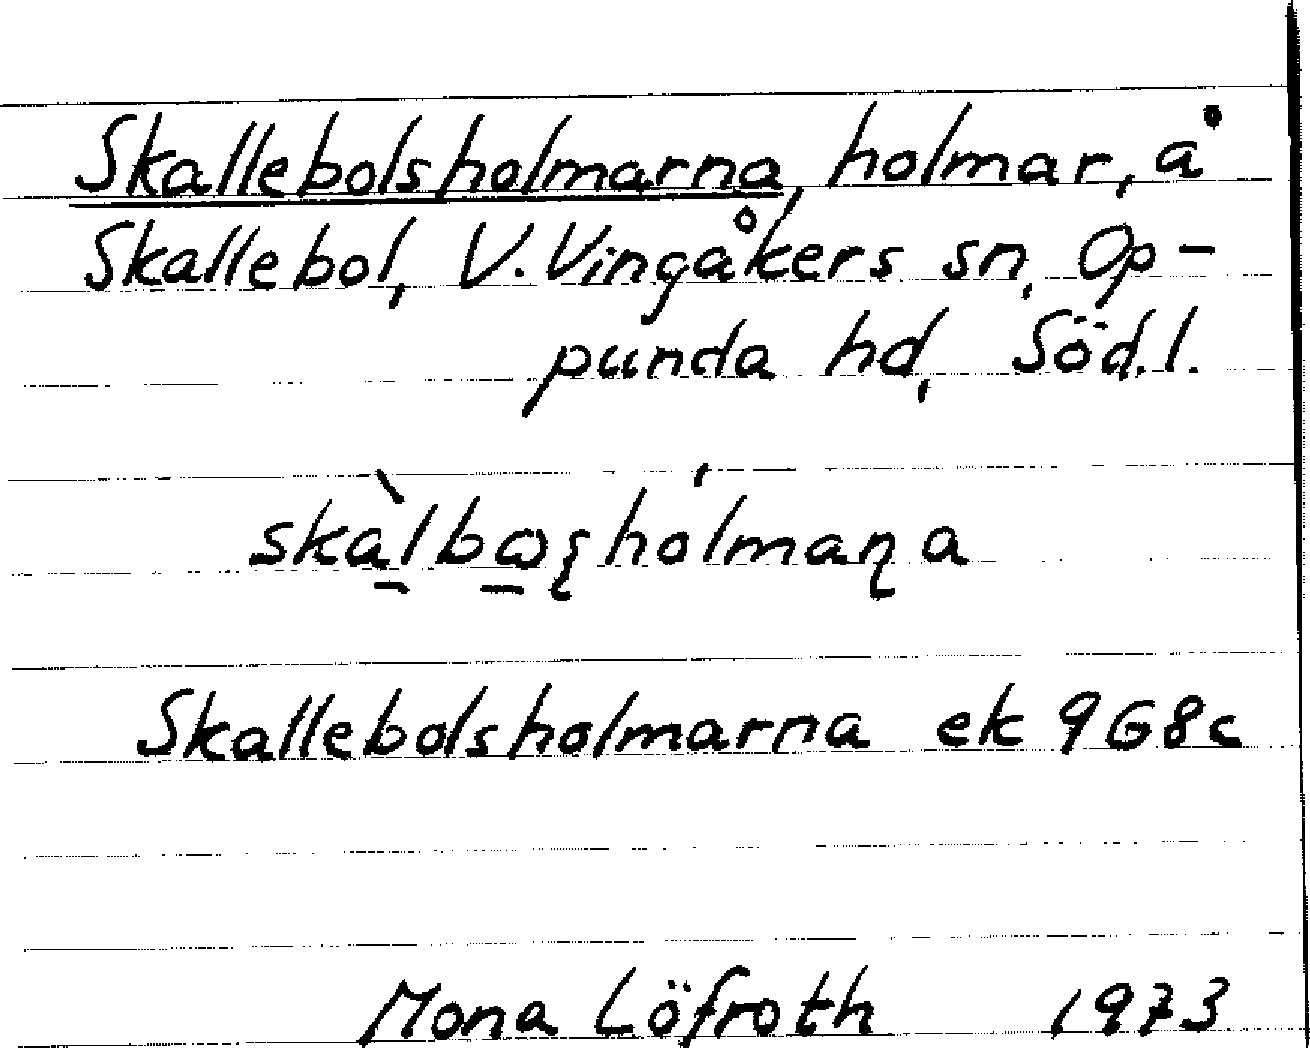 Skallebolsholmarna, holmar, å
Skallebol, V. Vingåkers sn, Op-
punda hd, Söd.l.
skàlboʂhólmaɳa
Skallebolsholmarna ek 9G8c
Mona Löfroth 1973